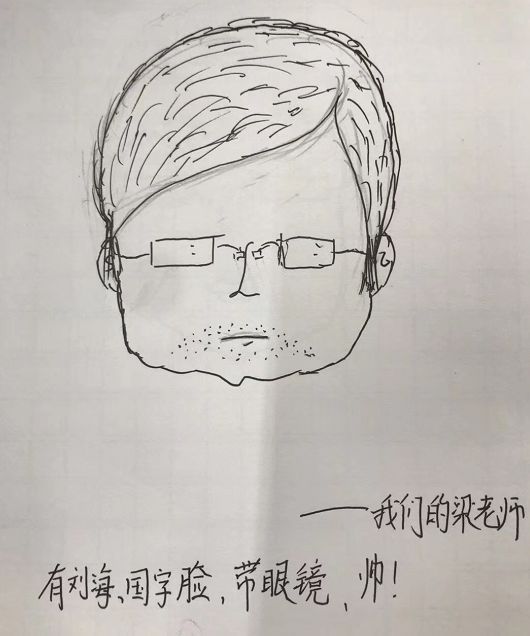 ——我们的梁老师
有刘海、国字脸、带眼镜、帅！